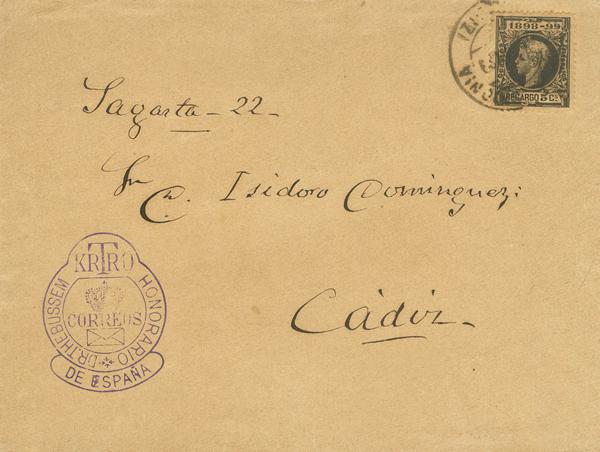 1898-99
RECARGO 5 Cs
Sagasta - 22 -
Sr
Dn. Isidoro Dominguez:
Cádiz -
KRTRO
HONORARIO
DR. THEBUSSEM
CORREOS
DE ESPAÑA